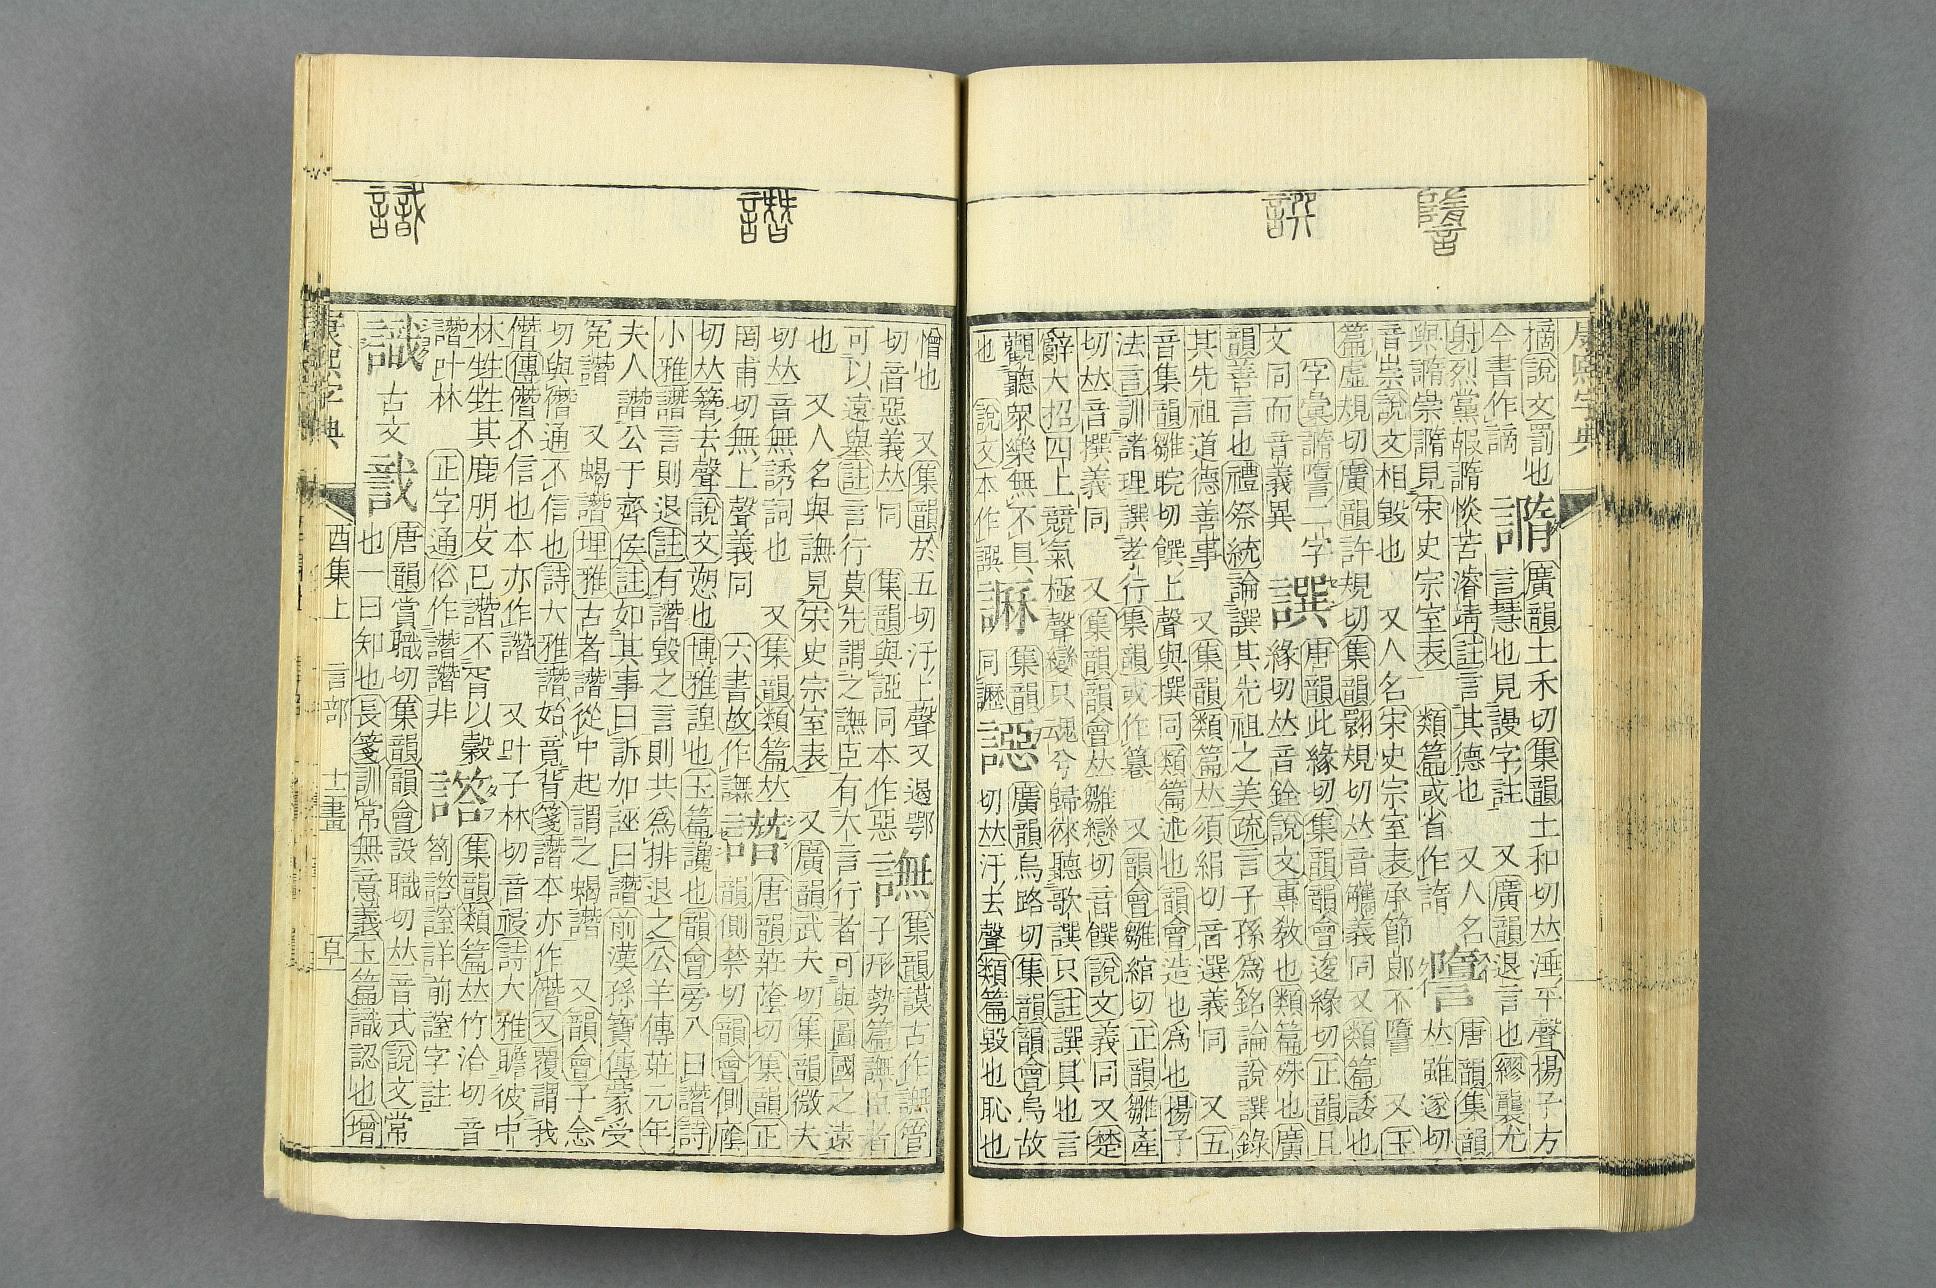 譔
康熙字典
摘說文罰也 廣韻土禾切集韻土和切𠀤唾平聲揚子方
今書作謫 言慧也見謾字註 又廣韻退言也繆襲尤
射烈黨嘏 惔苦濬靖註言其德也 又人名 唐韻集韻
與 崇 見宋史宗室表 類篇或省作 𠀤雖遂切
音祟說文相毀也 又人名宋史宗室表承節郎不 又玉
篇虛規切廣韻許規切集韻翾規切𠀤音觿義同 又類篇諉也
字彙 二字 譔 唐韻此緣切集韻韻會逡緣切正韻且
文同而音義異 緣切𠀤音銓說文專敎也類篇殊也廣
韻善言也禮祭統論譔其先祖之美疏言子孫爲銘論說譔錄
其先祖道德善事 又集韻類篇𠀤須絹切音選義同 又五
音集韻雛晥切饌上聲與撰同類篇述也韻會造也爲也揚子
法言訓諸理譔孝行集韻或作 又韻會雛綰切正韻雛產
切𠀤音撰義同 又集韻韻會𠀤雛戀切音饌說文義同 又楚
辭大招四上競氣極聲變只魂兮歸徠聽歌譔只註譔具也言
觀聽衆樂無不具 集韻 廣韻烏路切集韻韻會烏故
也 說文本作譔 同 切𠀤汙去聲類篇毀也恥也
譖
識
憎也 又集韻於五切汙上聲又遏鄂 譕 集韻謨古作譕管
切音惡義𠀤同 集韻與 同本作惡 子形勢篇譕臣者
可以遠舉註言行莫先謂之譕臣有大言行者可與圖國之遠
也 又人名與譕見宋史宗室表 又廣韻武夫切集韻微夫
切𠀤音無誘詞也 又集韻類篇𠀤 譖 唐韻莊蔭切集韻正
罔甫切無上聲義同 六書故作譕 韻側禁切韻會側廕
切𠀤簪去聲說文愬也博雅諻也玉篇讒也韻會旁入曰譖詩
小雅譖言則退註有譖毀之言則共爲排退之公羊傳莊元年
夫人譖公于齊侯註如其事曰訴加誣曰譖前漢孫寶傳蒙受
冤譖 又蝎譖埤雅古者譖從中起謂之蝎譖 又韻會子念
切與僭通不信也詩大雅譖始竟背箋譖本亦作僭又覆謂我
僭傳僭不信也本亦作譖 又叶子林切音祲詩大雅瞻彼中
林甡甡其鹿朋友已譖不胥以穀 集韻類篇𠀤竹洽切音
譖叶林 正字通俗作譖譖非 劄 詳前 字註
識 古文 唐韻賞職切集韻韻會設職切𠀤音式說文常
也一曰知也長箋訓常無意義玉篇識認也增
康熙字典 酉集上 言部 十二畫